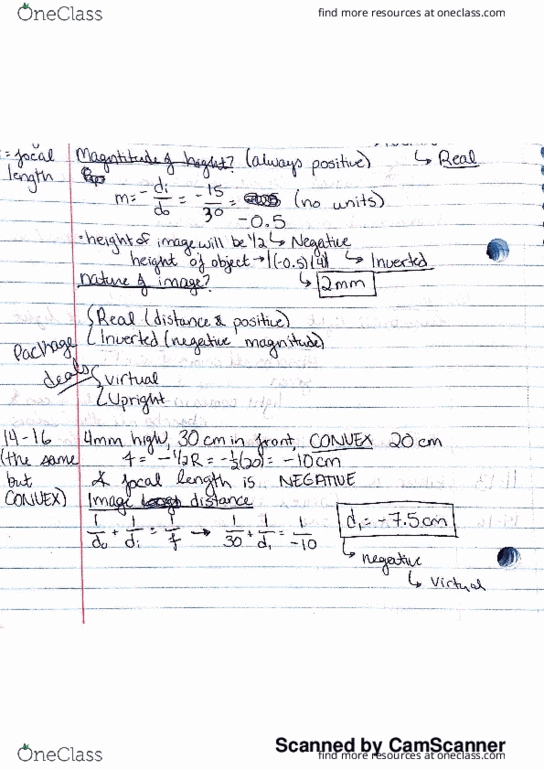 OneClass
find more resources at oneclass.com
= focal length
Magntitude of height? (always positive) ↳ Real
m = -di/do = -15/30 = -0.5 (no units)
· height of image will be 1/2 ↳ Negative
height of object → |(-0.5)(4)| ↳ Inverted
nature of image? ↳ 2mm
Real (distance & positive)
Inverted (negative magnitude)
Package deals
virtual
Upright
14-16 4mm high, 30 cm in front, CONVEX 20 cm
(the same but CONVEX) f = -1/2R = -1/2(20) = -10cm
& focal length is NEGATIVE
Image distance
1/do + 1/di = 1/f → 1/30 + 1/di = 1/-10 di = -7.5cm
↳ negative
↳ virtual
Scanned by CamScanner
OneClass
find more resources at oneclass.com